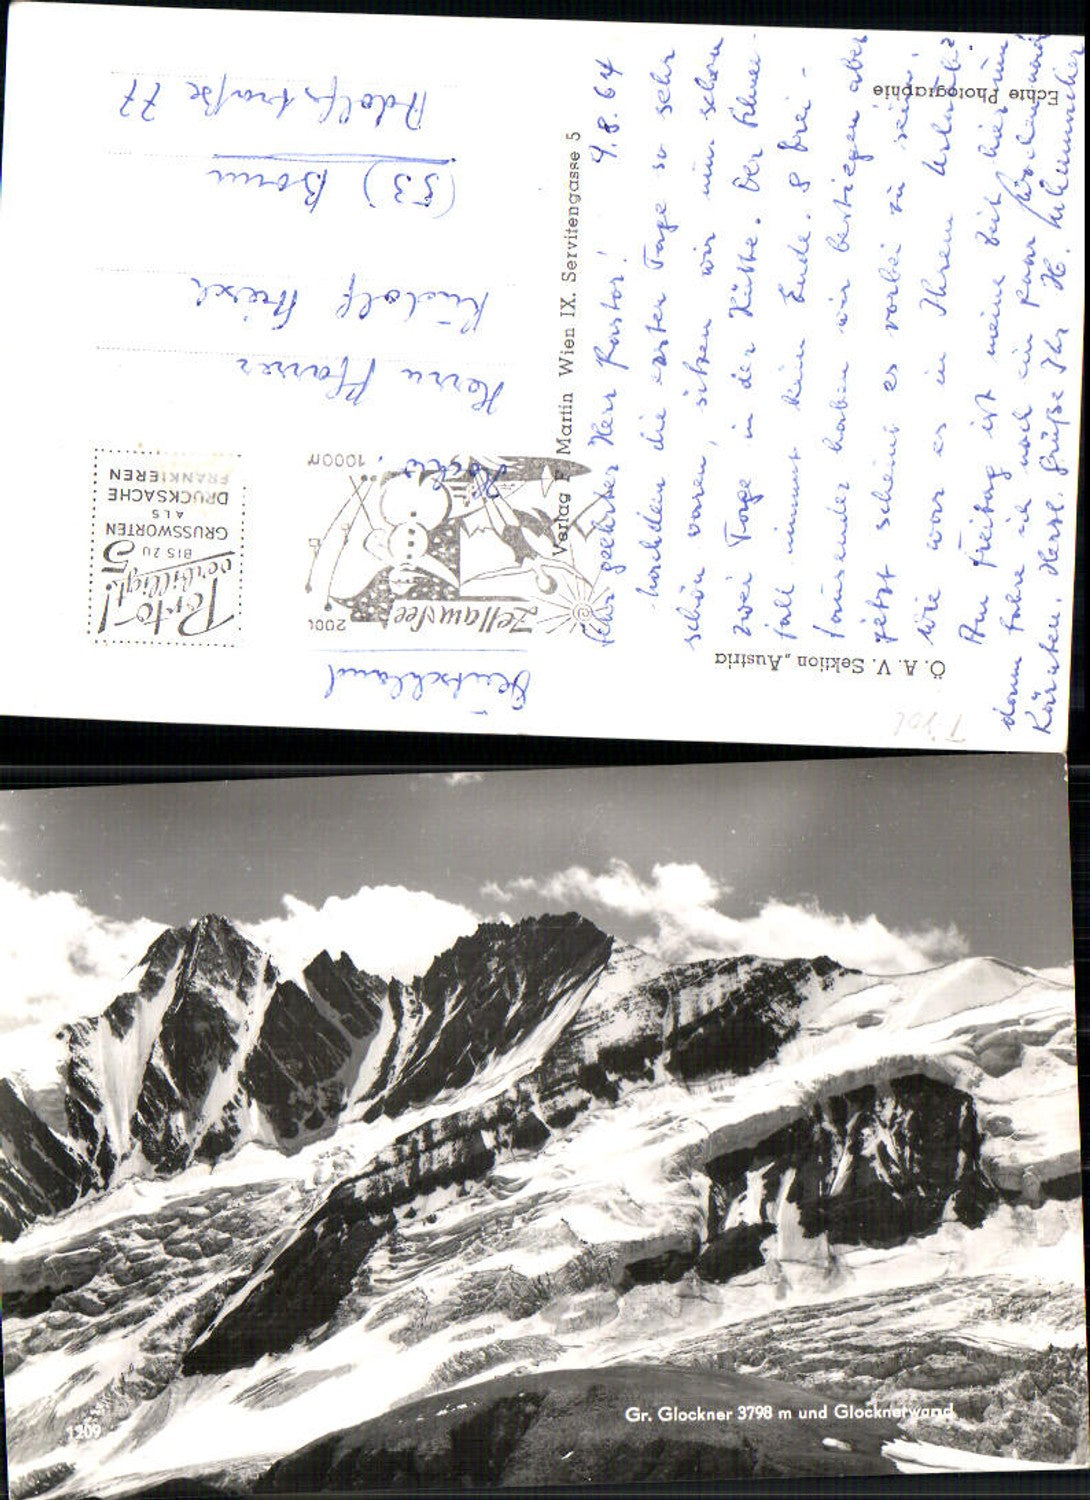 Ö. A. V. Sektion „Austria"
Echte Photographie
Verlag F. Martin Wien IX. Servitengasse 5
4.8.64
Sehr geehrter Herr Pastor!
Nachdem die ersten Tage so sehr
schön waren, sitzen wir nun schon
zwei Tage in der Hütte. Der Schnee-
fall nimmt kein Ende. 8 Drei-
tausender haben wir bestiegen aber
jetzt scheint es vorbei zu sein.
Wie war es in Ihrem Urlaub?
Am Freitag ist meine Zeit hier um
dann fahre ich noch ein paar nach
Kärnten. Herzl. Grüße Ihr H.
Zell am See
2000
1000m
Porto!
verbilligt
BIS ZU 5
GRUSSWORTEN
ALS
DRUCKSACHE
FRANKIEREN
Herrn Pfarrer
Rudolf
(53) Bonn
Adolfstraße 77
Deutschland
Tirol
Gr. Glockner 3798 m und Glocknerwand
1209